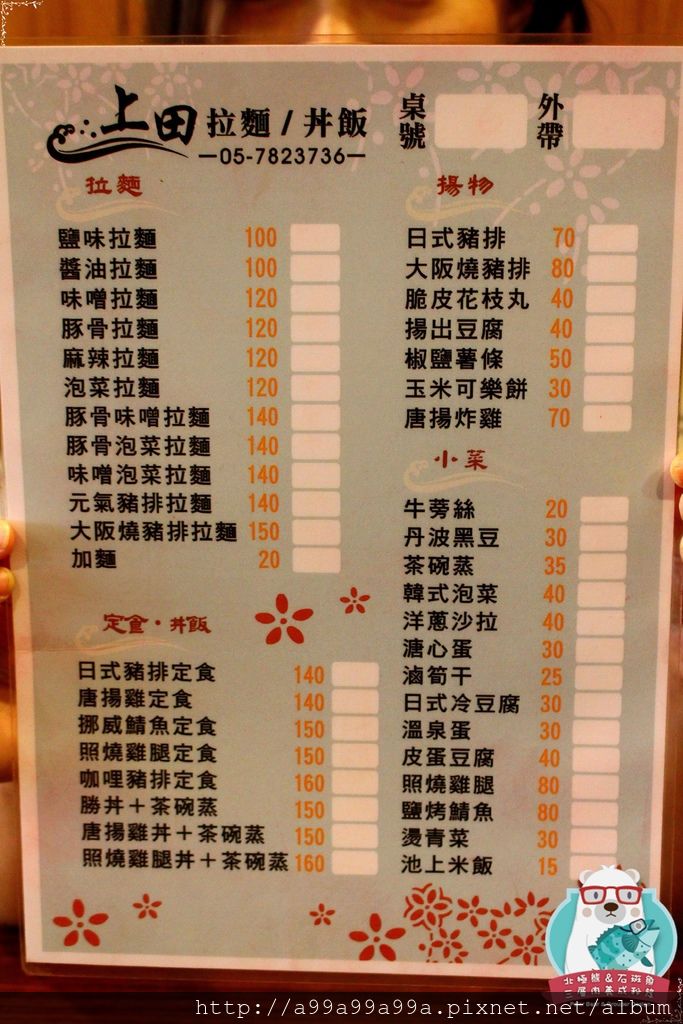 上田 拉麵 / 丼飯
桌號
外帶
05-7823736
拉麵
鹽味拉麵 100
醬油拉麵 100
味噌拉麵 120
豚骨拉麵 120
麻辣拉麵 120
泡菜拉麵 120
豚骨味噌拉麵 140
豚骨泡菜拉麵 140
味噌泡菜拉麵 140
元氣豬排拉麵 140
大阪燒豬排拉麵 150
加麵 20
定食・丼飯
日式豬排定食 140
唐揚雞定食 140
挪威鯖魚定食 150
照燒雞腿定食 150
咖哩豬排定食 160
勝丼+茶碗蒸 150
唐揚雞丼+茶碗蒸 150
照燒雞腿丼+茶碗蒸 160
揚物
日式豬排 70
大阪燒豬排 80
脆皮花枝丸 40
揚出豆腐 40
椒鹽薯條 50
玉米可樂餅 30
唐揚炸雞 70
小菜
牛蒡絲 20
丹波黑豆 30
茶碗蒸 35
韓式泡菜 40
洋蔥沙拉 40
溏心蛋 30
滷筍干 25
日式冷豆腐 30
溫泉蛋 30
皮蛋豆腐 40
照燒雞腿 80
鹽烤鯖魚 80
燙青菜 30
池上米飯 15
北極熊&石斑魚
http://a99a99a99a.pixnet.net/album